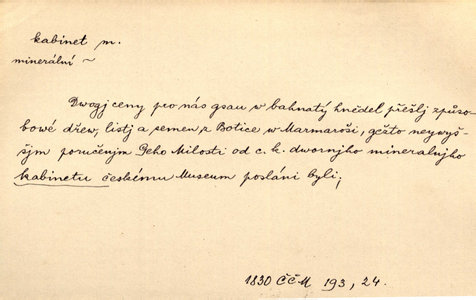 kabinet m.
minerální ~
Dwogj ceny pro nás gsau w bahnatý hnědel přešlj způso-
bowé dřew, listj a semen z Botice w Marmaroši, gežto neywyš-
šjm poručenjm Jeho Milosti od c. k. dwornjho mineralnjho
kabinetu českému Museum posláni byli;
1830 ČČM 193, 24.